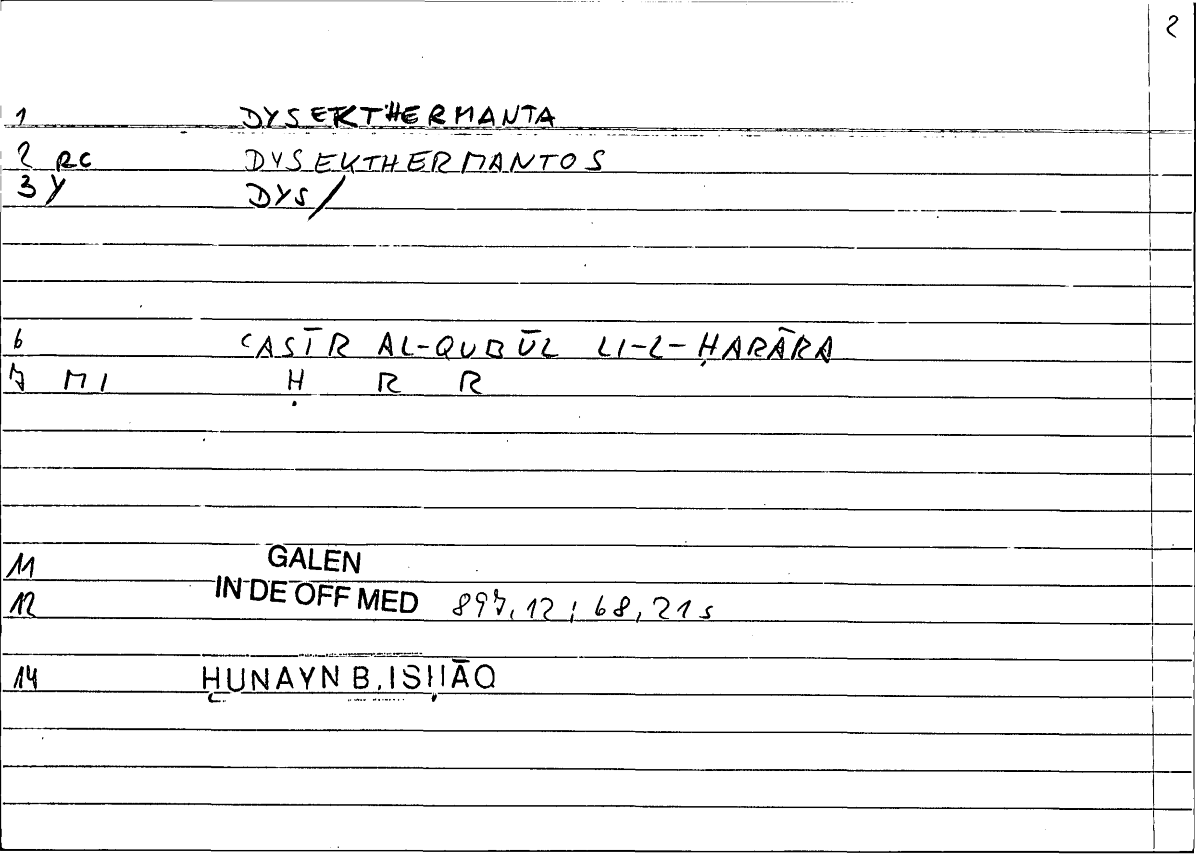 2
1 DYSEKTHERMANTA
2 RC DYSEKTHERMANTOS
3 Y DYS/
6 ʿASĪR AL-QUBŪL LI-L-ḤARĀRA
7 MI Ḥ R R
11 GALEN
12 IN DE OFF MED 897,12; 68,21s
14 ḤUNAYN B. ISḤĀQ